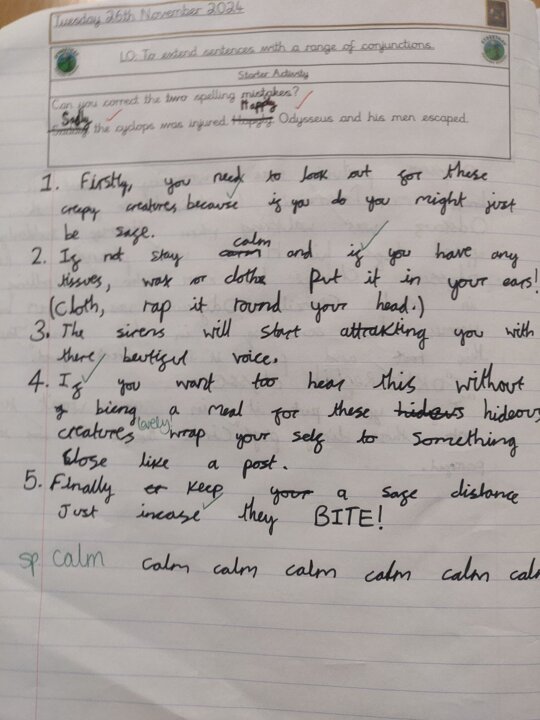 Tuesday 26th November 2024
LO: To extend sentences with a range of conjunctions.
Starter Activity
Can you correct the two spelling mistakes?
Sadly Happy
the cyclops was injured Odysseus and his men escaped.
1. Firstly, you need to look out for these
creepy creatures because if you do you might just
be safe.
2. If not stay calm and if you have any
tissues, wax or clothe put it in your ears!
(Cloth, rap it round your head.)
3. The sirens will start attrakting you with
there beutiful voice.
4. If you want too hear this without
bieng a meal for these hideus hideous
creatures lovely wrap your self to something
close like a post.
5. Finally or keep your a safe distance
Just incase they BITE!
sp calm calm calm calm calm calm cal